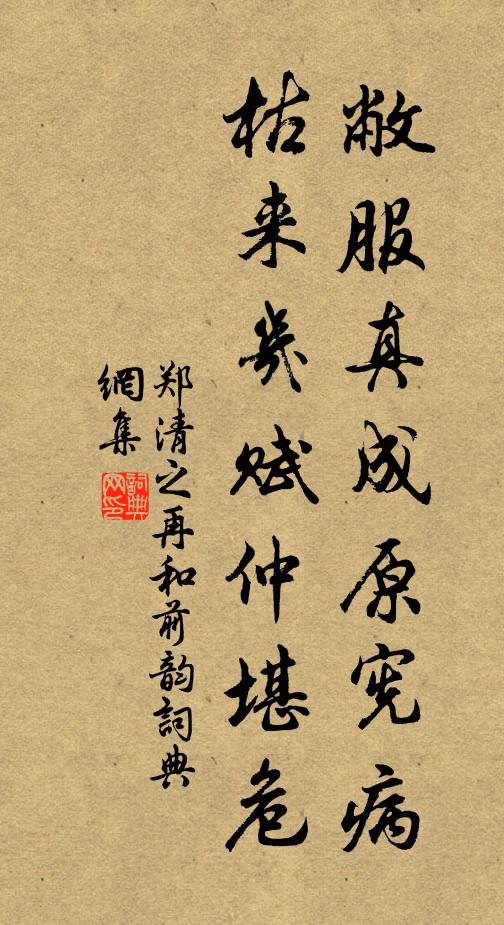 敝服真成原宪病
枯来几赋仲堪危
郑清之再和前韵詞典
網集
詞典
网印